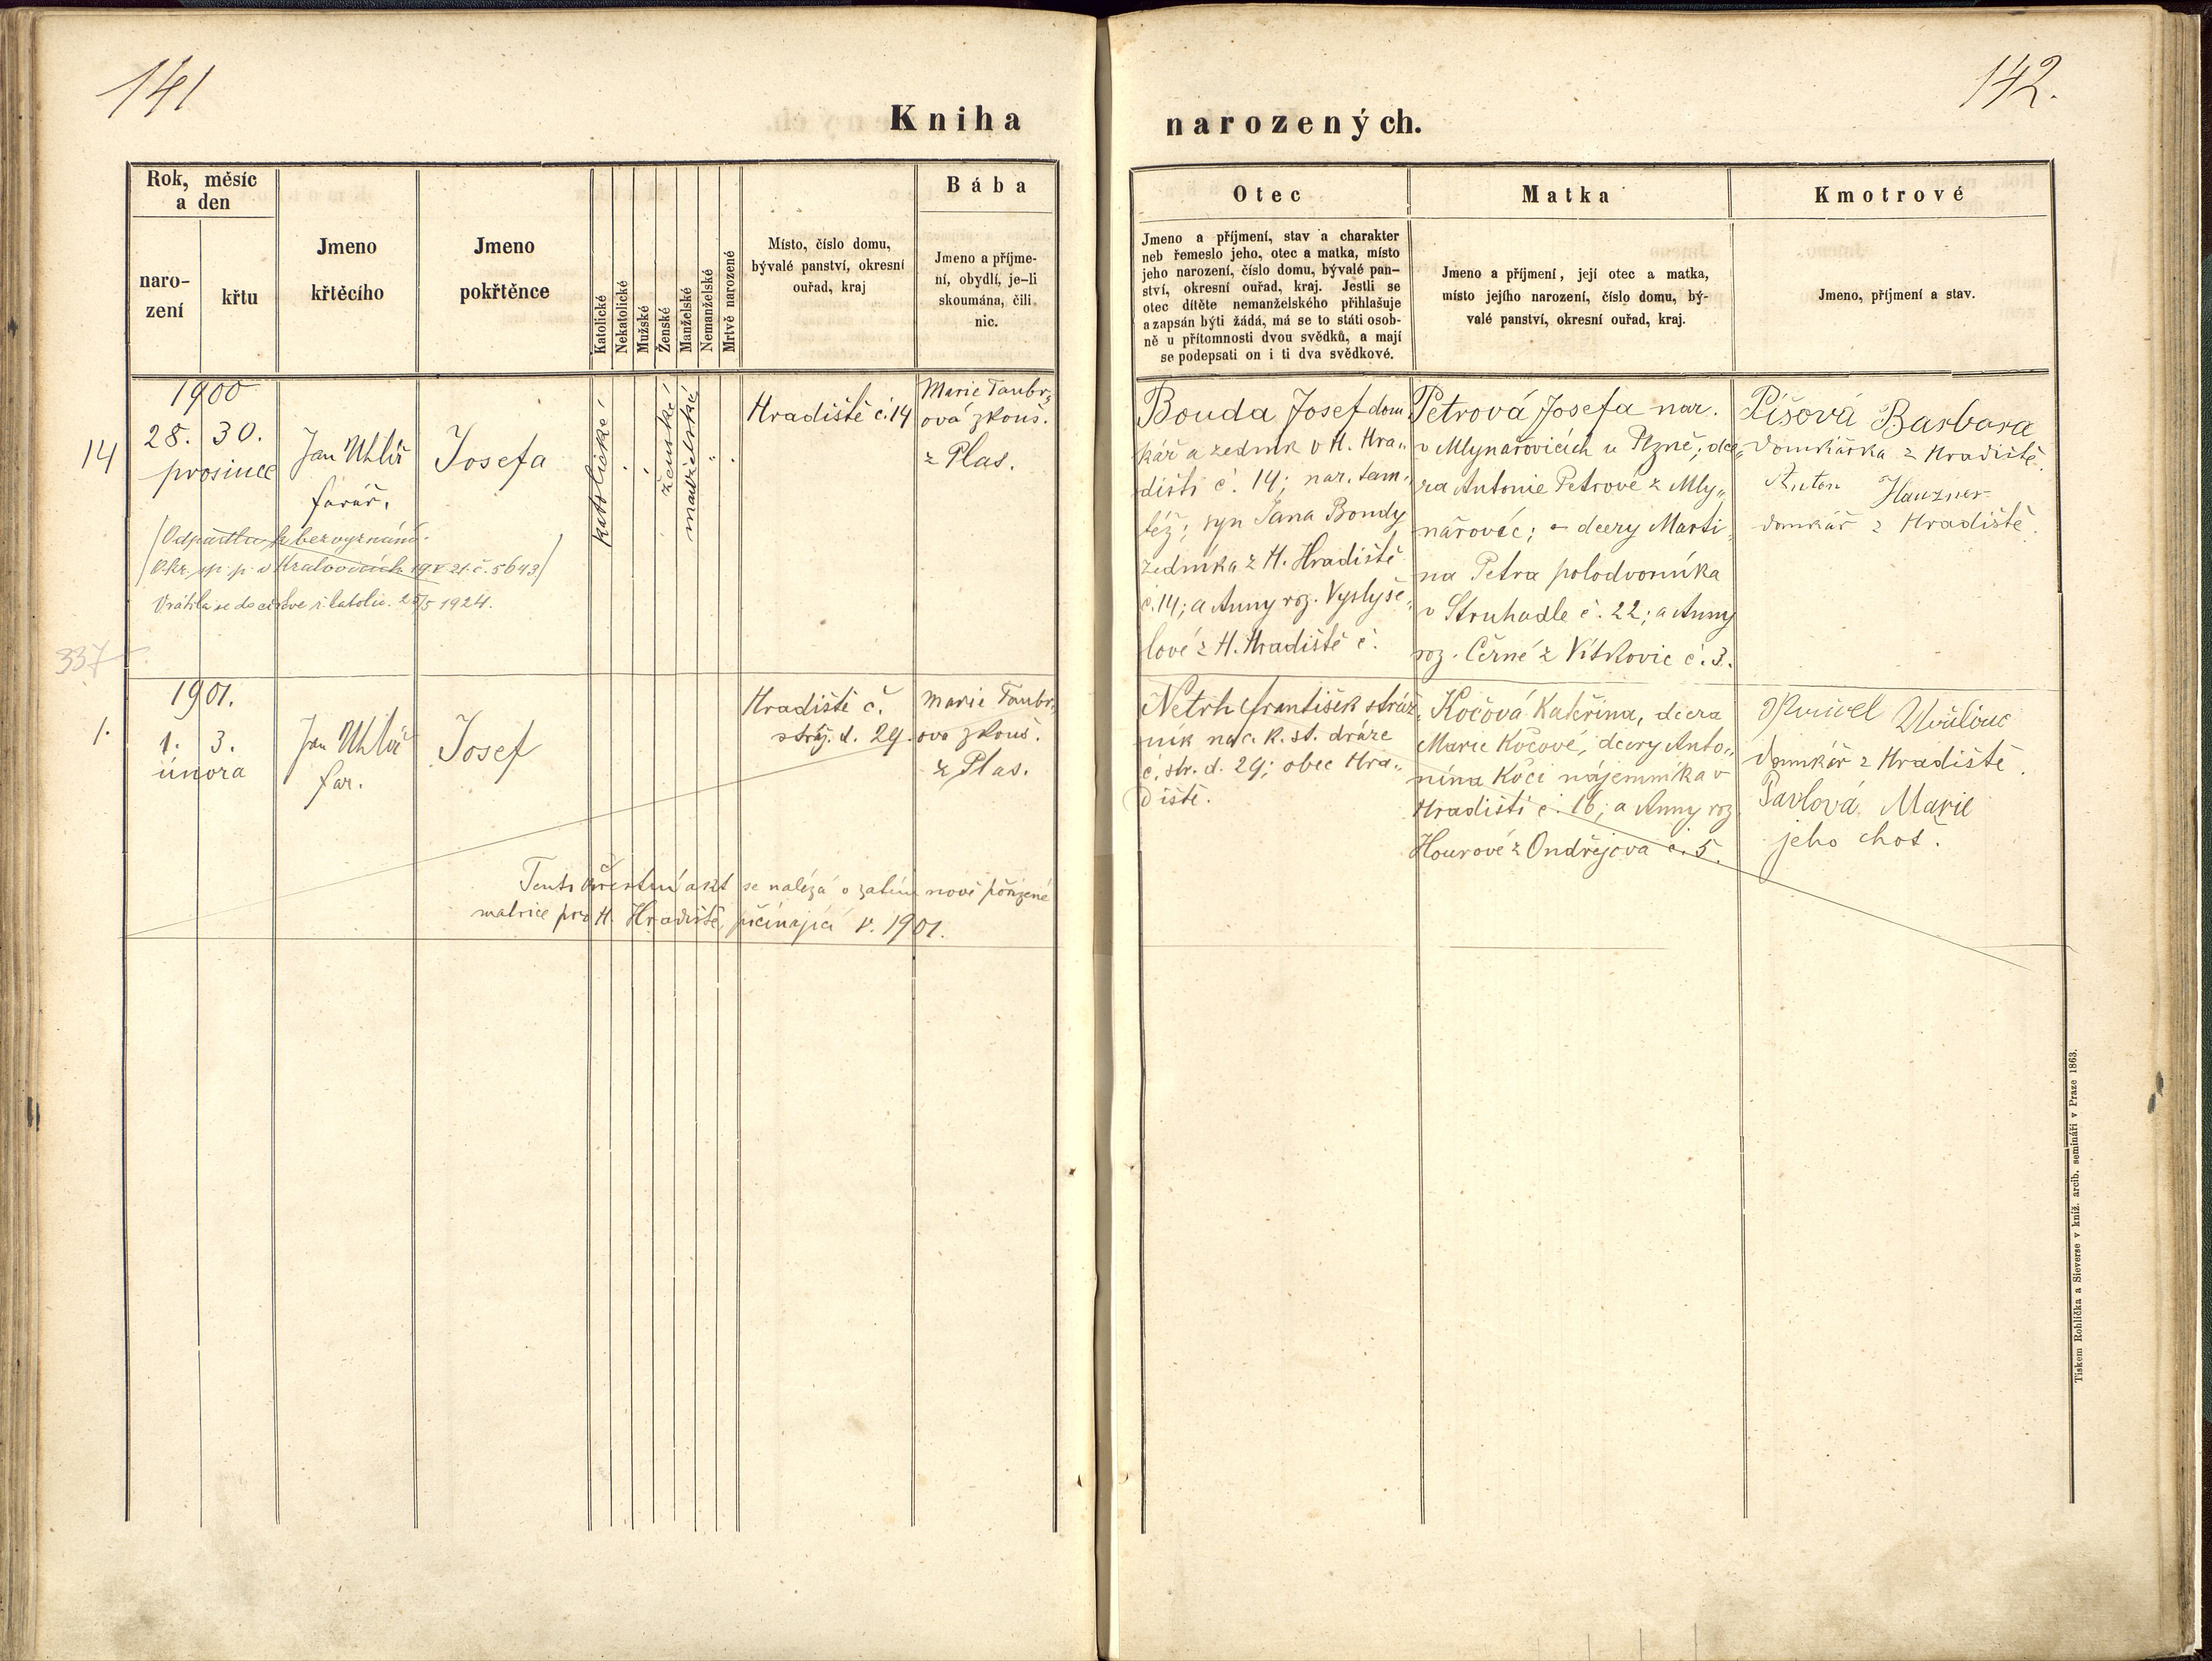 141
142.
Kniha
narozených.
Rok, měsíc
a den
naro-
zení
křtu
Jmeno
křtěcího
Jmeno
pokřtěnce
Katolické
Nekatolické
Mužské
Ženské
Manželské
Nemanželské
Mrtvě narozené
Místo, číslo domu,
bývalé panství, okresní
ouřad, kraj
Bába
Jmeno a příjme-
ní, obydlí, je-li
skoumána, čili
nic.
Otec
Jmeno a příjmení, stav a charakter
neb řemeslo jeho, otec a matka, místo
jeho narození, číslo domu, bývalé pan-
ství, okresní ouřad, kraj. Jestli se
otec dítěte nemanželského přihlašuje
a zapsán býti žádá, má se to státi osob-
ně u přítomnosti dvou svědků, a mají
se podepsati on i ti dva svědkové.
Matka
Jmeno a příjmení, její otec a matka,
místo jejího narození, číslo domu, bý-
valé panství, okresní ouřad, kraj.
Kmotrové
Jmeno, příjmení a stav.
14
1900
28. 30.
prosince
Jan Uhlíř
farář.
Josefa
katolické
ženské
manželské
Hradiště č. 14
Marie Taubr„
ová zkouš.
z Plas.
Bouda Josef dom
kář a zedník v H. Hra„
dišti č. 14; nar. tam„
též; syn Jana Boudy
zedníka z H. Hradiště
č. 14; a Anny roz. Vyslyše„
lové z H. Hradiště č.
Petrová Josefa nar.
v Mlynařovicích u Plzně; dce„
ra Antonie Petrové z Mly„
nařovic; dcery Marti„
na Petra polodvorníka
v Struhadle č. 22; a Anny
roz. Černé z Vítkovic č. 3.
Píšová Barbara
domkářka z Hradiště.
Anton Hauzner
domkář z Hradiště.
Odpadla k bezvyznání.
Okr. sp. p. v Kralovicích 19 V 21. č. 5643
Vrátila se do církve ř. katolic. 25/5 1924.
337
1.
1901.
1. 3.
února
Jan Uhlíř
far.
Josef
Hradiště č.
stráž. d. 29.
Marie Taubr„
ova zkouš.
z Plas.
Netrh František stráž„
ník na c. k. st. dráze
č. str. d. 29; obec Hra„
diště.
Kočová Kateřina, dcera
Marie Kočové, dcery Anto„
nína Kočí nájemníka v
Hradišti č. 16; a Anny roz
Hourové z Ondřejova č. 5.
domkář z Hradiště.
Pavlová Marie
jeho choť.
Tento křestní akt se nalézá v zatím nově pořízené
matrice pro H. Hradiště, počínající r. 1901.
Tiskem Rohlíčka a Sieverse v kníž. arcib. semináři v Praze 1863.